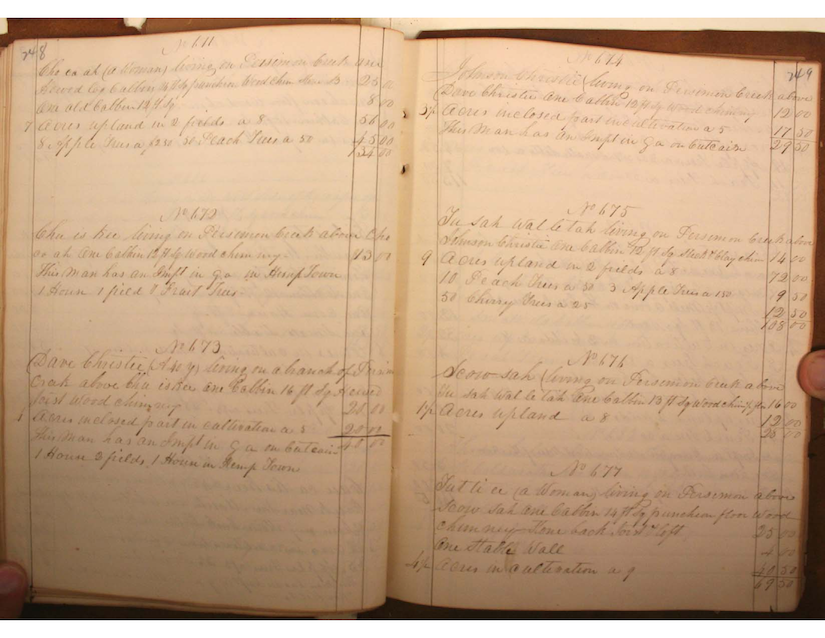 248
No 611
Che ca ah (a Woman) living on Persemon Creek
Hewed Log Cabbin 16 ft puncheon Wood Chim 25 00
One old Cabbin 14 ft Sq 8 00
7 Acres upland in 2 fields a 8 56 00
8 Apple Trees a 50 Peach Trees a 50 45 00
134 00
No 672
living on Persemon Creek above Che
ca ah One Cabbin 12 ft Sq Wood chimney 13 00
This Man has an Impt in Ga in Hemp Town
1 House 1 field 8 Fruit Trees
No 673
(Dave Christie living on a branch of Persim
Creek above One Cabbin 16 ft Sq
joist Wood chimney 20 00
Acres inclosed part in cultivation a 20 00
This Man has an Impt in Ga on Cutcain 40 00
1 House 3 fields, 1 House in Hemp Town
249
No 674
Johnson Christie (living on Persemon Creek above
(Dave Christie One Cabbin 12 ft Sq Wood chimney 12 00
3½ Acres inclosed part in cultivation a 5 17 50
This Man has an Impt in Ga on Cutcain 29 50
No 675
Tu sah Wal le tah living on Persemon Creek above
Johnson Christie One Cabbin 12 ft Sq Stick & Clay chim 14 00
9 Acres upland in 2 fields a 8 72 00
10 Peach Trees a 50 3 Apple Trees a 150 9 50
50 Cherry Trees a 25 12 50
108 00
No 676
Scow sah (living on Persemon Creek above
Tu sah Wal le tah One Cabbin 13 ft Sq Wood chimy 16 00
1½ Acres upland a 8 12 00
28 00
No 677
(a Woman) living on Persemon above
Scow sah One Cabbin 14 ft Sq puncheon floor Wood
chimney Stone back Joist & loft 25 00
One Stable Wall 4 00
4½ Acres in cultivation a 9 40 50
69 50